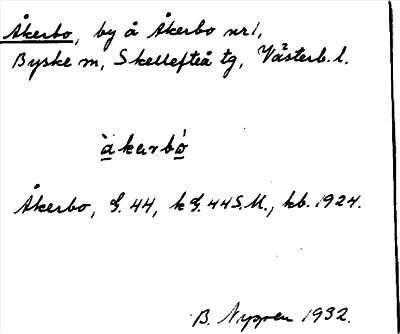 Åkerbo, by å Åkerbo nr 1,
Byske sn, Skellefteå tg, Västerb. l.
àkerbó
Åkerbo, G. 44, k G. 44 S.M., kb. 1924.
B. Nygren 1932.